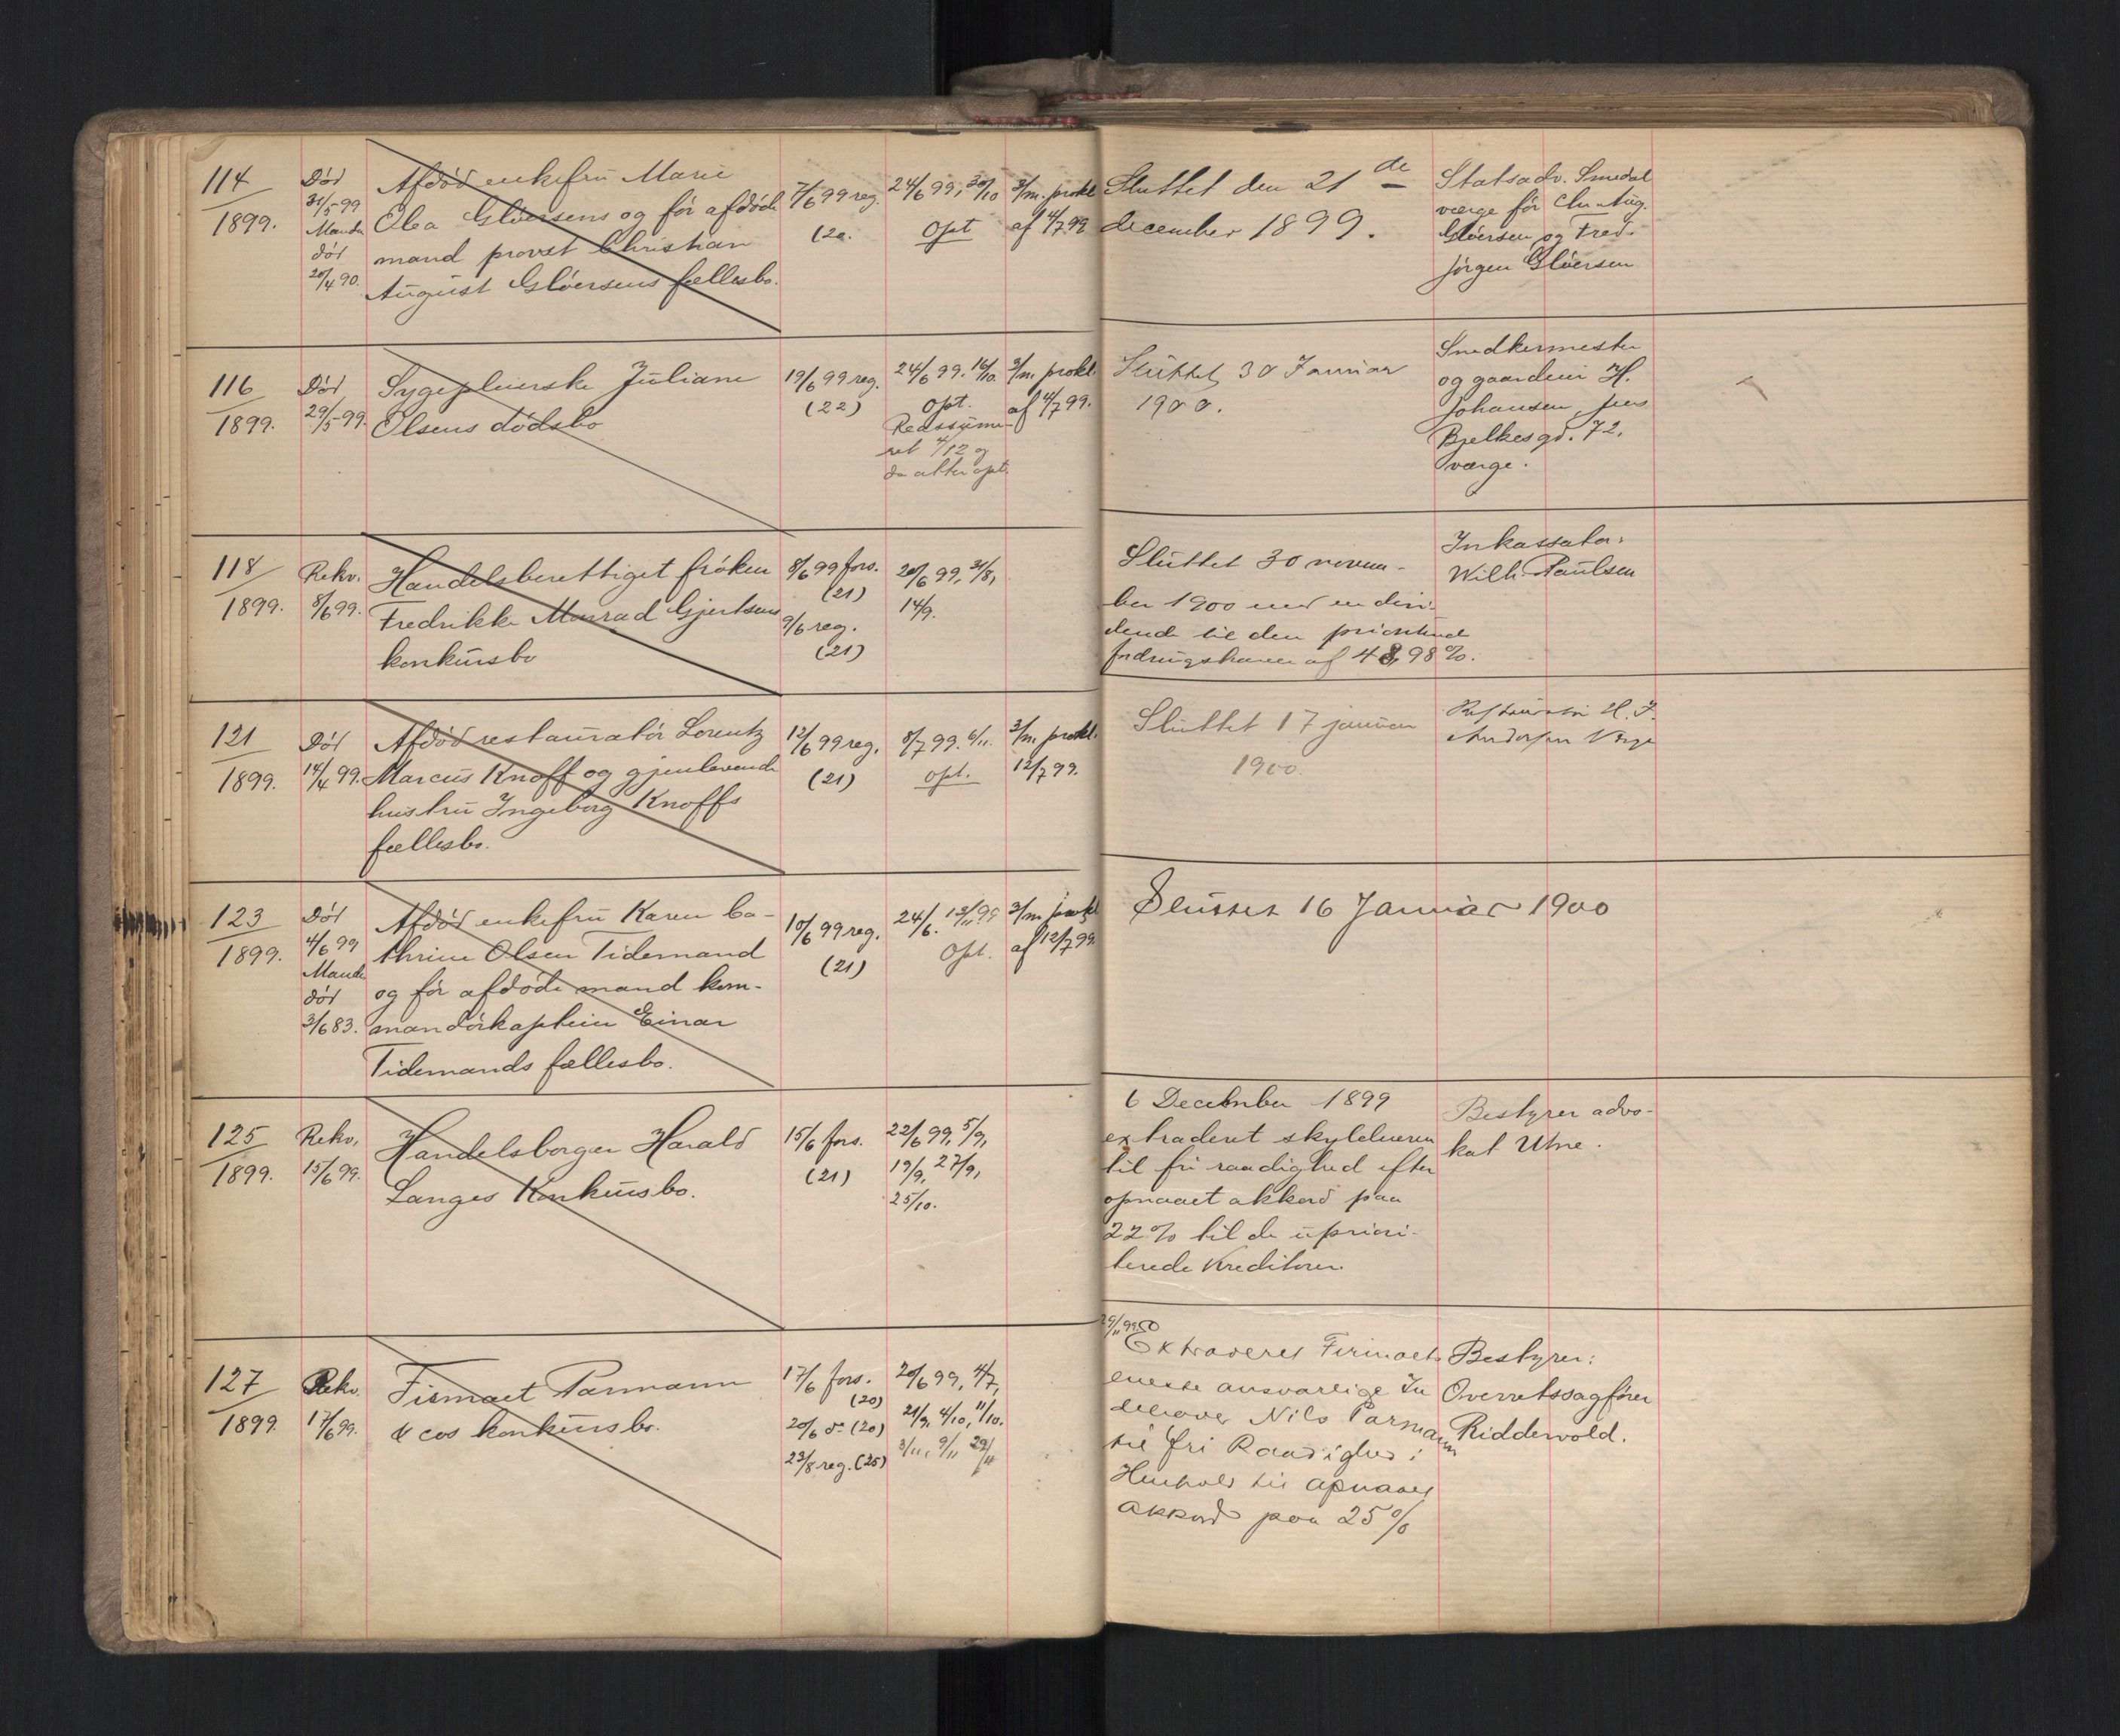 114
1899.
Död
31/5 99
Manden
död
20/4 90.
Afdöd enkefru Marie
Olea Glöersens og för afdöde
mand provst Christian
August Glöersens fællesbo.
7/6 99 reg.
(20.
24/6 99, 30/10
Opt
3/m. prokl.
af 4/7 99
Sluttet den 21de
december 1899.
Statsadv. Smedal
værge för Chr. Aug.
Glöersen og Fred.
Jörgen Glöersen
116
1899.
Död
29/5 99.
Sygepleierske Juliane
Olsens dödsbo
19/6 99 reg.
(22)
24/6 99. 16/10.
Opt.
Reassume-
ret 4/12 og
da atter opt.
3/m. prokl.
af 4/7 99.
Sluttet 30 Januar
1900.
Snedkermester
og gaardeier H.
Johansen, Jens
Bjelkesgd. 72.
værge.
118
1899.
Rekv.
8/6 99.
Handelsberettiget fröken
Fredrikke Monrad Gjertsens
konkursbo
8/6 99 fors.
(21)
9/6 reg.
(21)
20/6 99, 31/8,
14/9.
Sluttet 30 novem-
ber 1900 med en divi-
dende til den prioritired
fordringshaver af 48,98 %.
Inkassator:
Wilh. Paulsen
121
1899.
Död
14/4 99.
Afdöd restauratör Lorentz
Marcus Knoff og gjenlevende
hustru Ingeborg Knoffs
fællesbo.
12/6 99 reg.
(21)
8/7 99. 6/11.
opt.
3/m. prokl.
12/7 99.
Sluttet 17 januar
1900.
Restauratör H. J.
Andersen Værge
123
1899.
Död
4/6 99
Manden
död
3/6 83.
Afdöd enkefru Karen Ca-
thrine Olsen Tidemand
og för afdöde mand kom-
mandörkaptein Einar
Tidemands fællesbo.
10/6 99 reg.
(21)
24/6. 13/11 99
Opt.
3/m prokl
af 12/7 99.
Sluttet 16 Januar 1900
125
1899.
Rekv.
15/6 99.
Handelsborger Harald
Langes Konkursbo.
15/6 fors.
(21)
22/6 99, 5/9,
19/9, 27/9,
25/10.
6 December 1899
extraderet skyldneren
til fri raadighed efter
opnaaet akkord paa
22 % til de upriori-
terede Kreditorer.
Bestyrer advo-
kat Utne.
127
1899.
Rekv.
17/6 99.
Firmaet Parmann
& cos konkursbo.
17/6 fors.
(20)
20/6 do (20)
23/8 reg. (25)
20/6 99, 4/7,
21/9, 4/10, 11/10.
3/11, 9/11 29/11
29/11 99
Extraderet Firmaets
eneste ansvarlige In
dehaver Nils Parmann
til fri Raadighed i
Henhold til opnaaet
akkord paa 25 %
Bestyrer:
Overretssagförer
Riddervold.